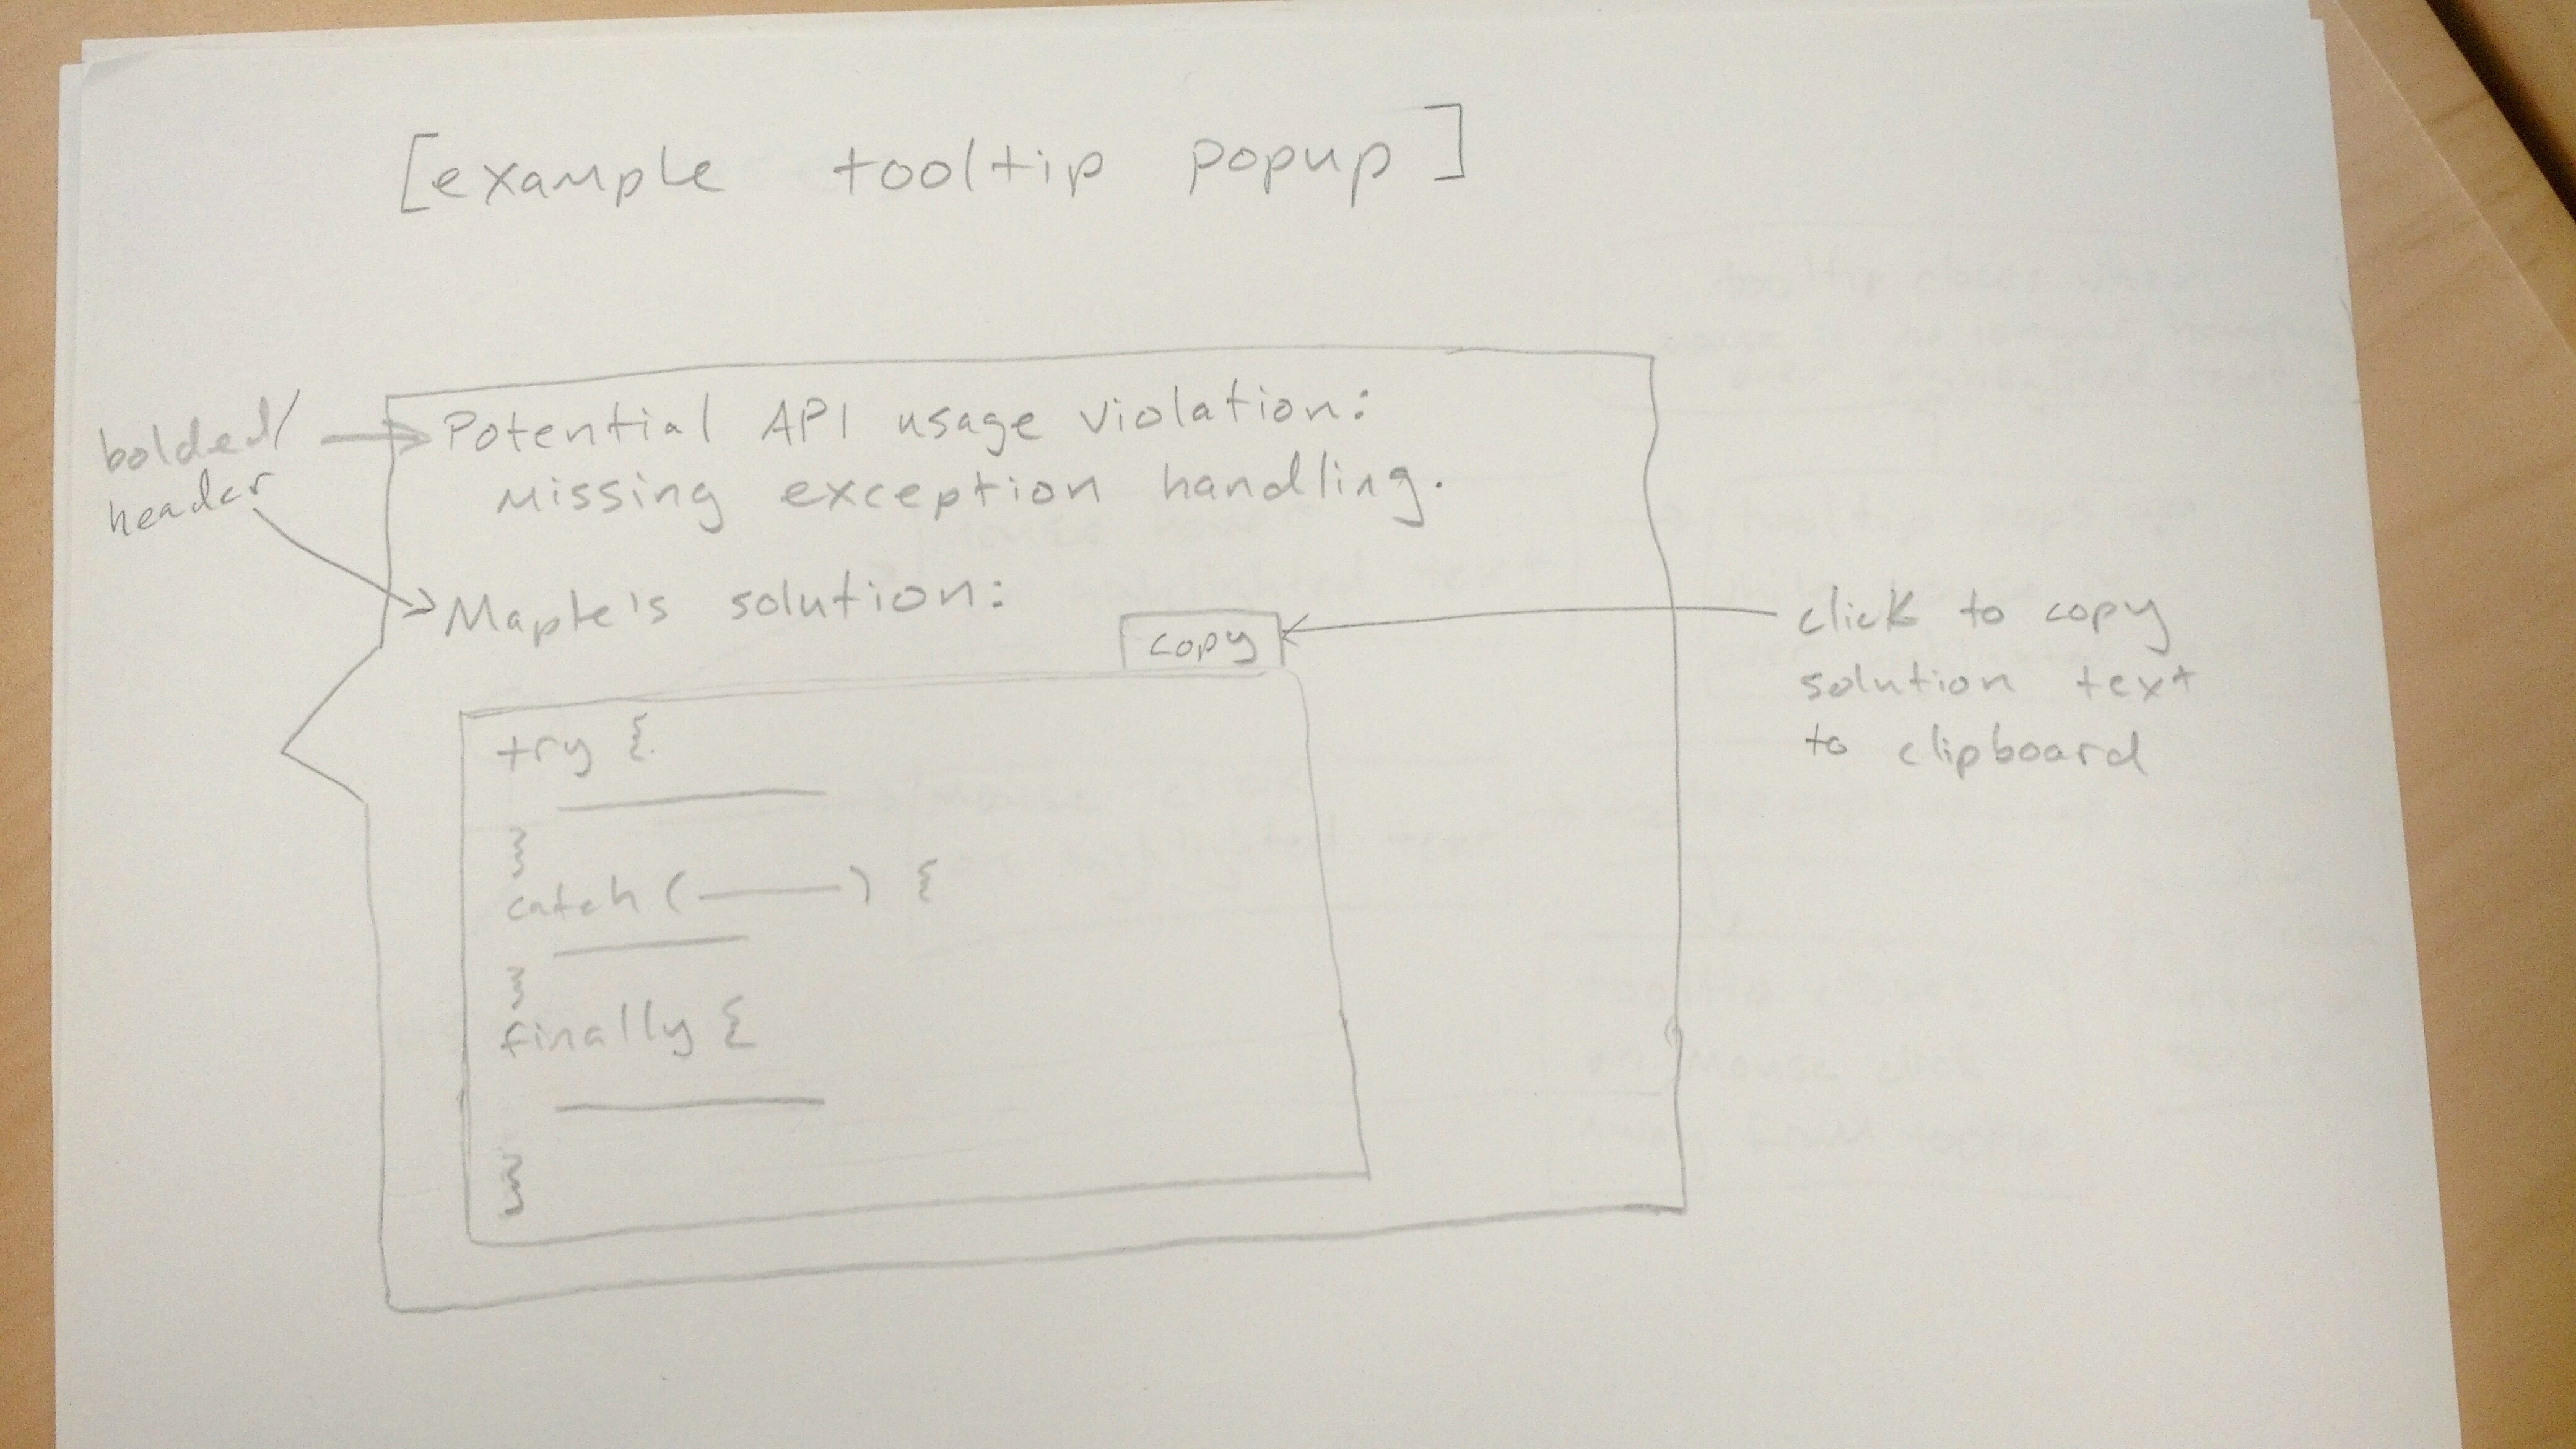 [example tooltip popup]
bolded/
header
Potential API usage violation:
Missing exception handling.
Maple's solution:
copy
click to copy
solution text
to clipboard
try {
}
catch (———) {
}
finally {
}